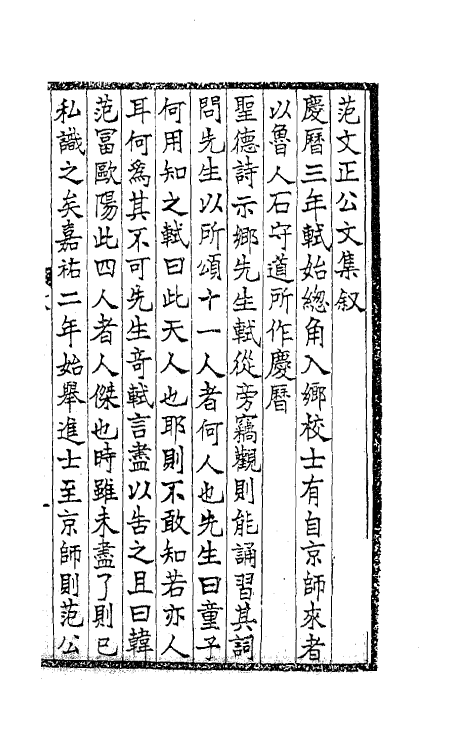 范文正公文集叙
慶曆三年軾始總角入鄉校士有自京師來者
以魯人石守道所作慶曆
聖德詩示鄉先生軾從旁竊觀則能誦習其詞
問先生以所頌十一人者何人也先生曰童子
何用知之軾曰此天人也耶則不敢知若亦人
耳何爲其不可先生奇軾言盡以告之且曰韓
范冨歐陽此四人者人傑也時雖未盡了則已
私識之矣嘉祐二年始舉進士至京師則范公